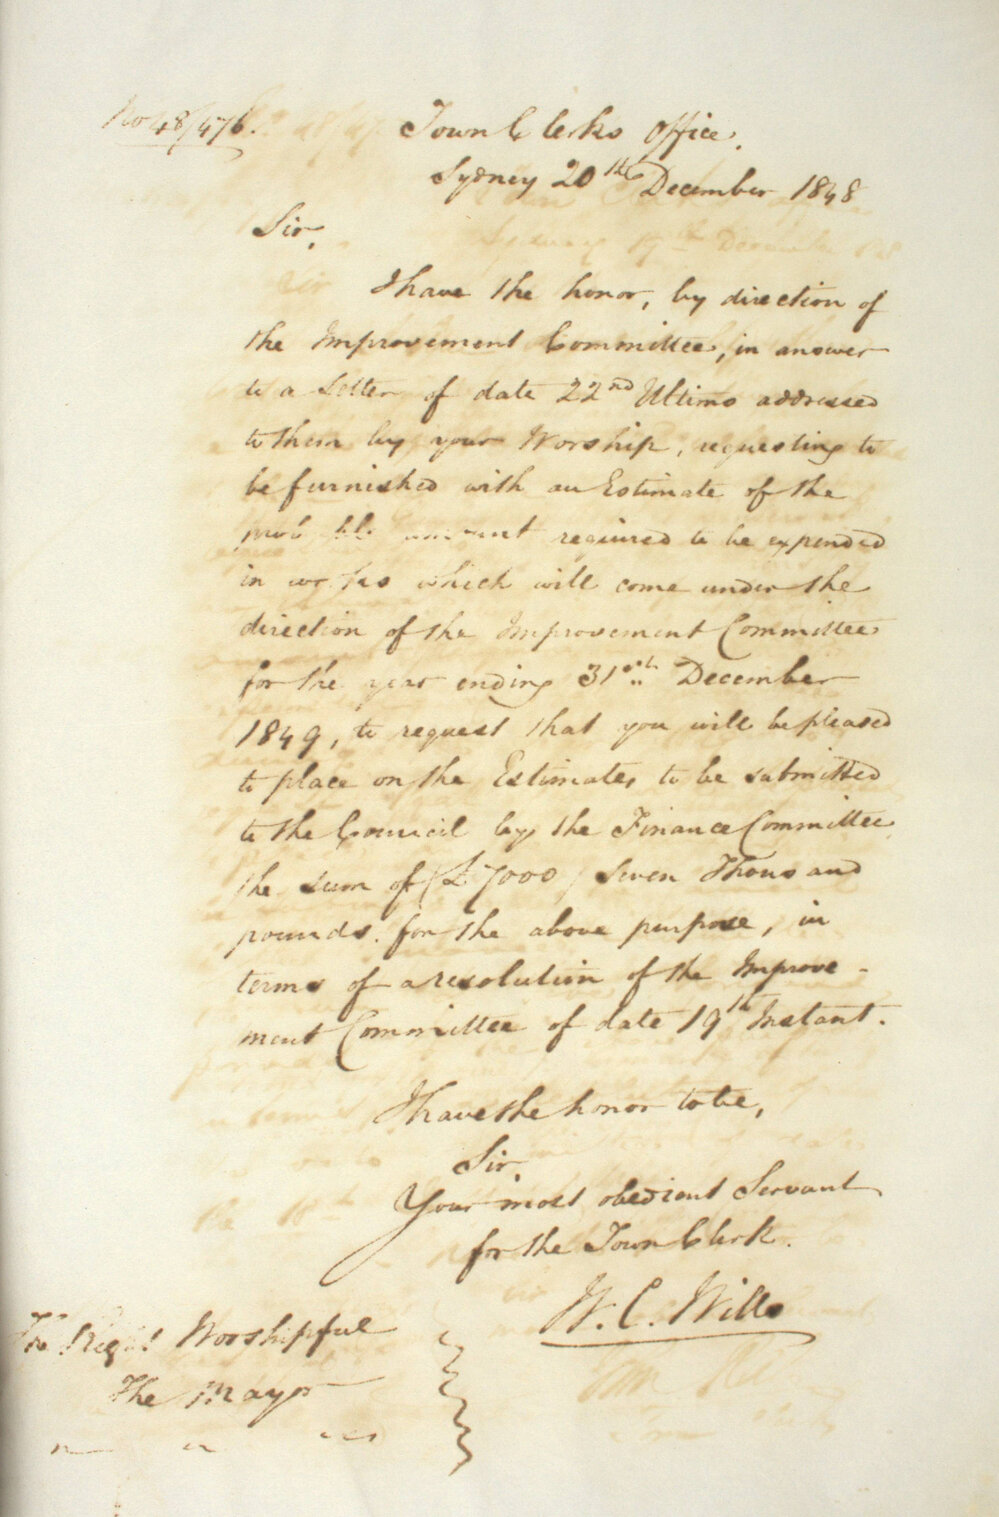 No 48/476.
Town Clerks Office.
Sydney 20th December 1848
Sir,
I have the honor, by direction of
the Improvement Committee, in answer
to a Letter of date 22nd Ultimo addressed
to them by your Worship, requesting to
be furnished with an Estimate of the
probable amount required to be expended
in works which will come under the
direction of the Improvement Committee
for the year ending 31st December
1849, to request that you will be pleased
to place on the Estimates to be submitted
to the Council by the Finance Committee
the sum of (£7000) Seven Thousand
pounds. for the above purpose, in
terms of a resolution of the Improve-
ment Committee of date 19th Instant.
I have the honor to be,
Sir,
Your most obedient Servant
for the Town Clerk.
W. C. Wills
The Right Worshipful
The Mayor